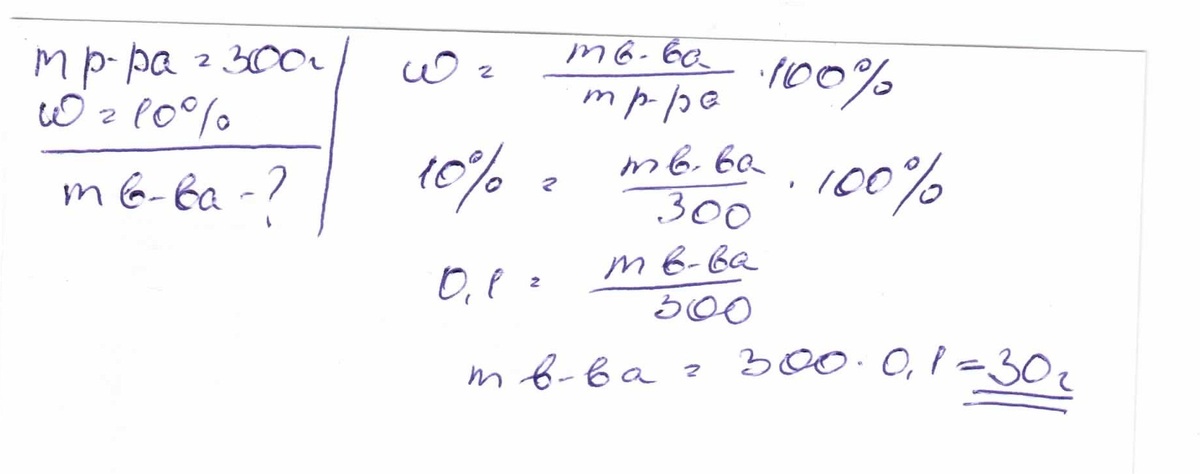 m р-ра = 300г
ω = 10%
m в-ва - ?
ω = m в-ва / m р-ра · 100%
10% = m в-ва / 300 · 100%
0,1 = m в-ва / 300
m в-ва = 300 · 0,1 = 30г